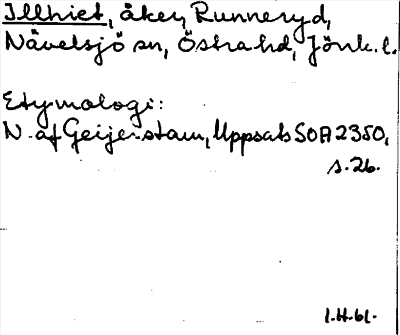 Illhiet, åker, Runneryd,
Nävelsjö sn, Östra hd, Jönk. l.
Etymologi:
N. af Geijerstam, Uppsats SOA 2350,
s. 26.
1.H.61.